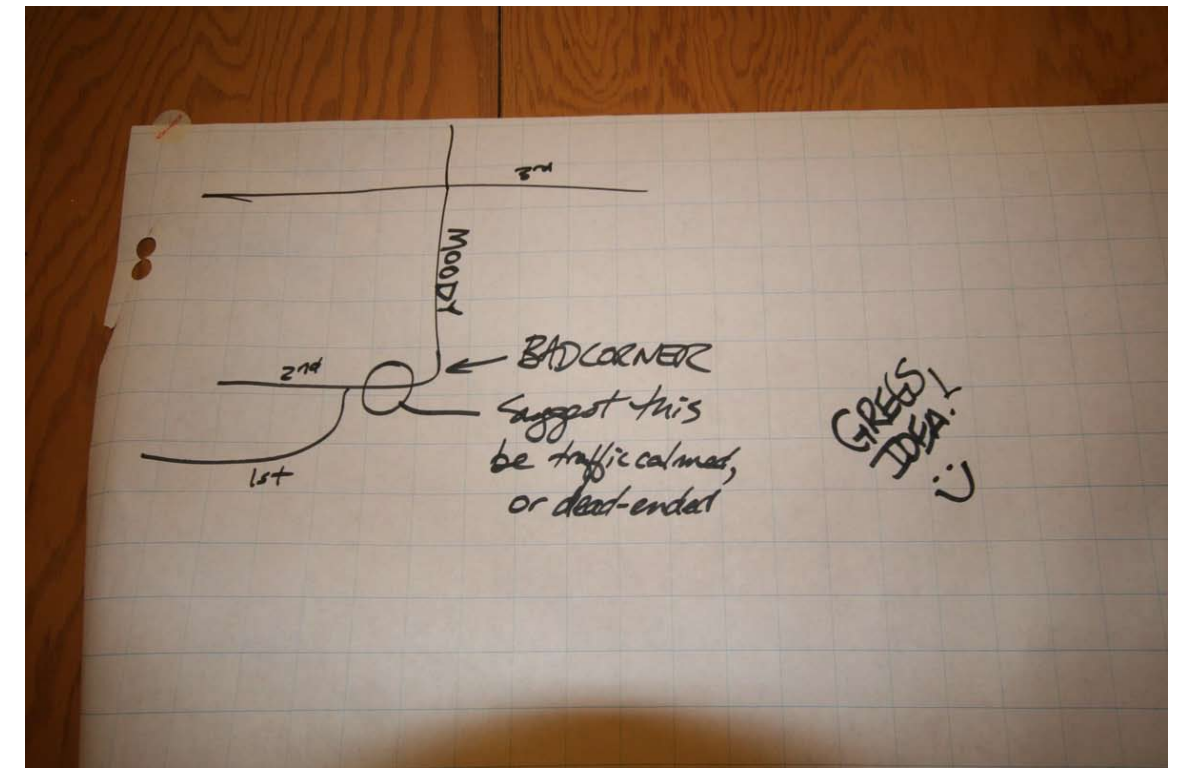 3rd
MOODY
2nd
BAD CORNER
Suggest this
be traffic calmed,
or dead-ended
1st
GREGS
IDEA!
:)